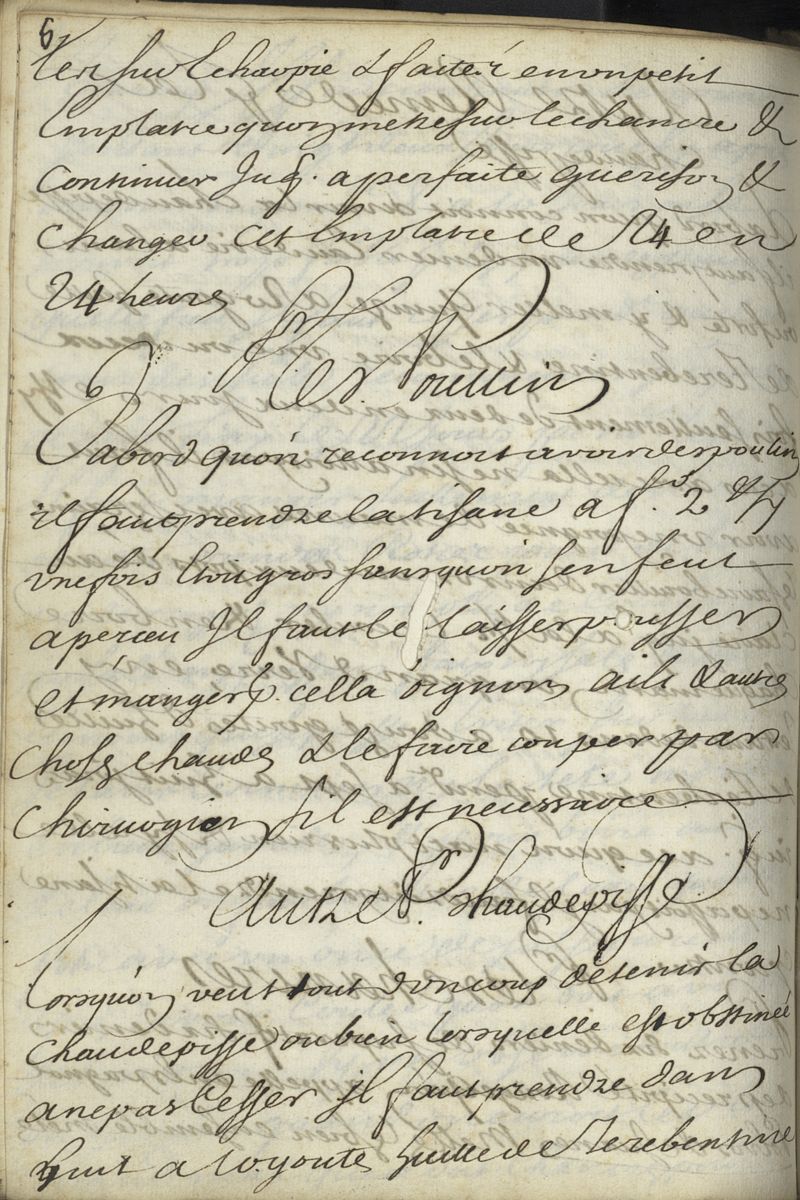 6
sur lchaorpie & faite.i en un petit
Emplatre quon mette sur le chancre &
continuer Jusq. a perfaite guerison &
changer cet Emplatre de 24 en
24 heures
Pr Les Poullins
Dabord quon reconnoit avoir des poulin
il faut prendre la tisane a fo. 2 &
une fois gros sans quon sen feut
aperceu Il faut le laisser pousser
et manger p. cella oignons ails & autres
choses chaudes & le faire couper par
chirurgien sil est necessaire
Autre Pr. Chaudepisse
Lorsquon veut tout dun coup detenir la
chaudepisse ou bien lorsquelle est obstinée
a ne pas Cesser il faut prendre dans
huit a huille de Terebentine